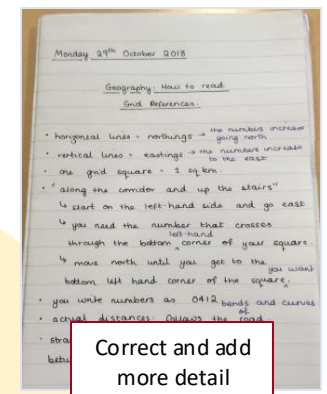 Monday 29th October 2018
Geography: How to read
Grid References.
• horizontal lines = northings → the numbers increase
going north
• vertical lines = eastings → the numbers increase
to the east
• one grid square = 1 sq km.
• "along the corridor and up the stairs"
↳ start on the left-hand side and go east
↳ you need the number that crosses
left-hand
through the bottom ^ corner of your square.
↳ move north until you get to the
you want
bottom left hand corner of the square.^
• you write numbers as 0412
bends and curves
of
• actual distances: follows the road.
• stra
betw
Correct and add
more detail